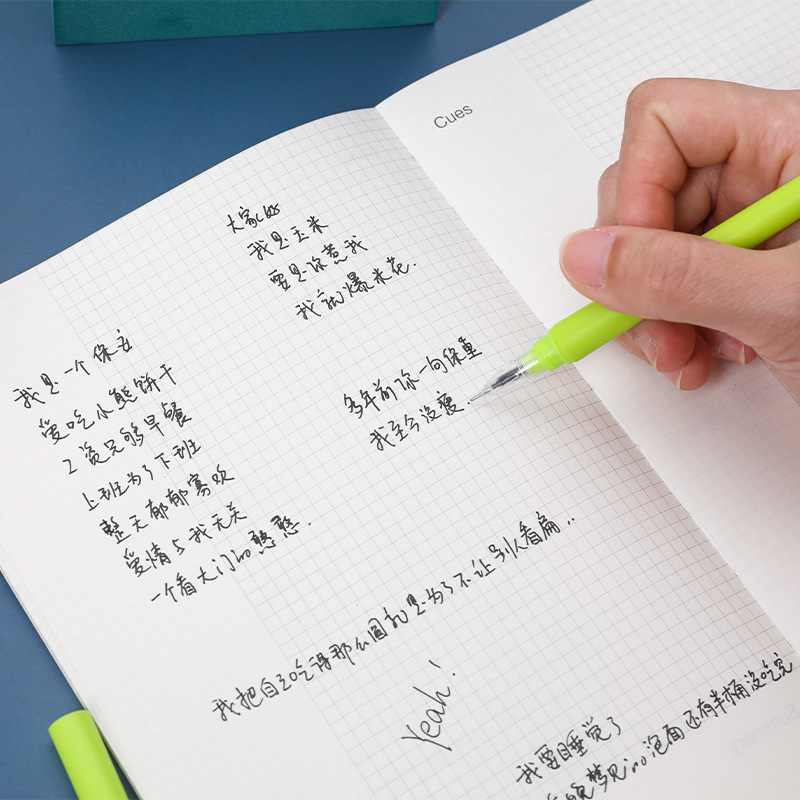 Cues
大家好
我是玉米
要是你惹我
我就爆米花.
我是一个保安
爱吃小熊饼干
工资只够早餐
上班为了下班
整天郁郁寡欢
爱情与我无关
一个看大门的憨憨.
多年前你一句保重
我至今没瘦.
我把自己吃得那么圆就是为了不让别人看扁..
Yeah!
我要睡觉了
晚梦见的泡面还有半桶没吃完